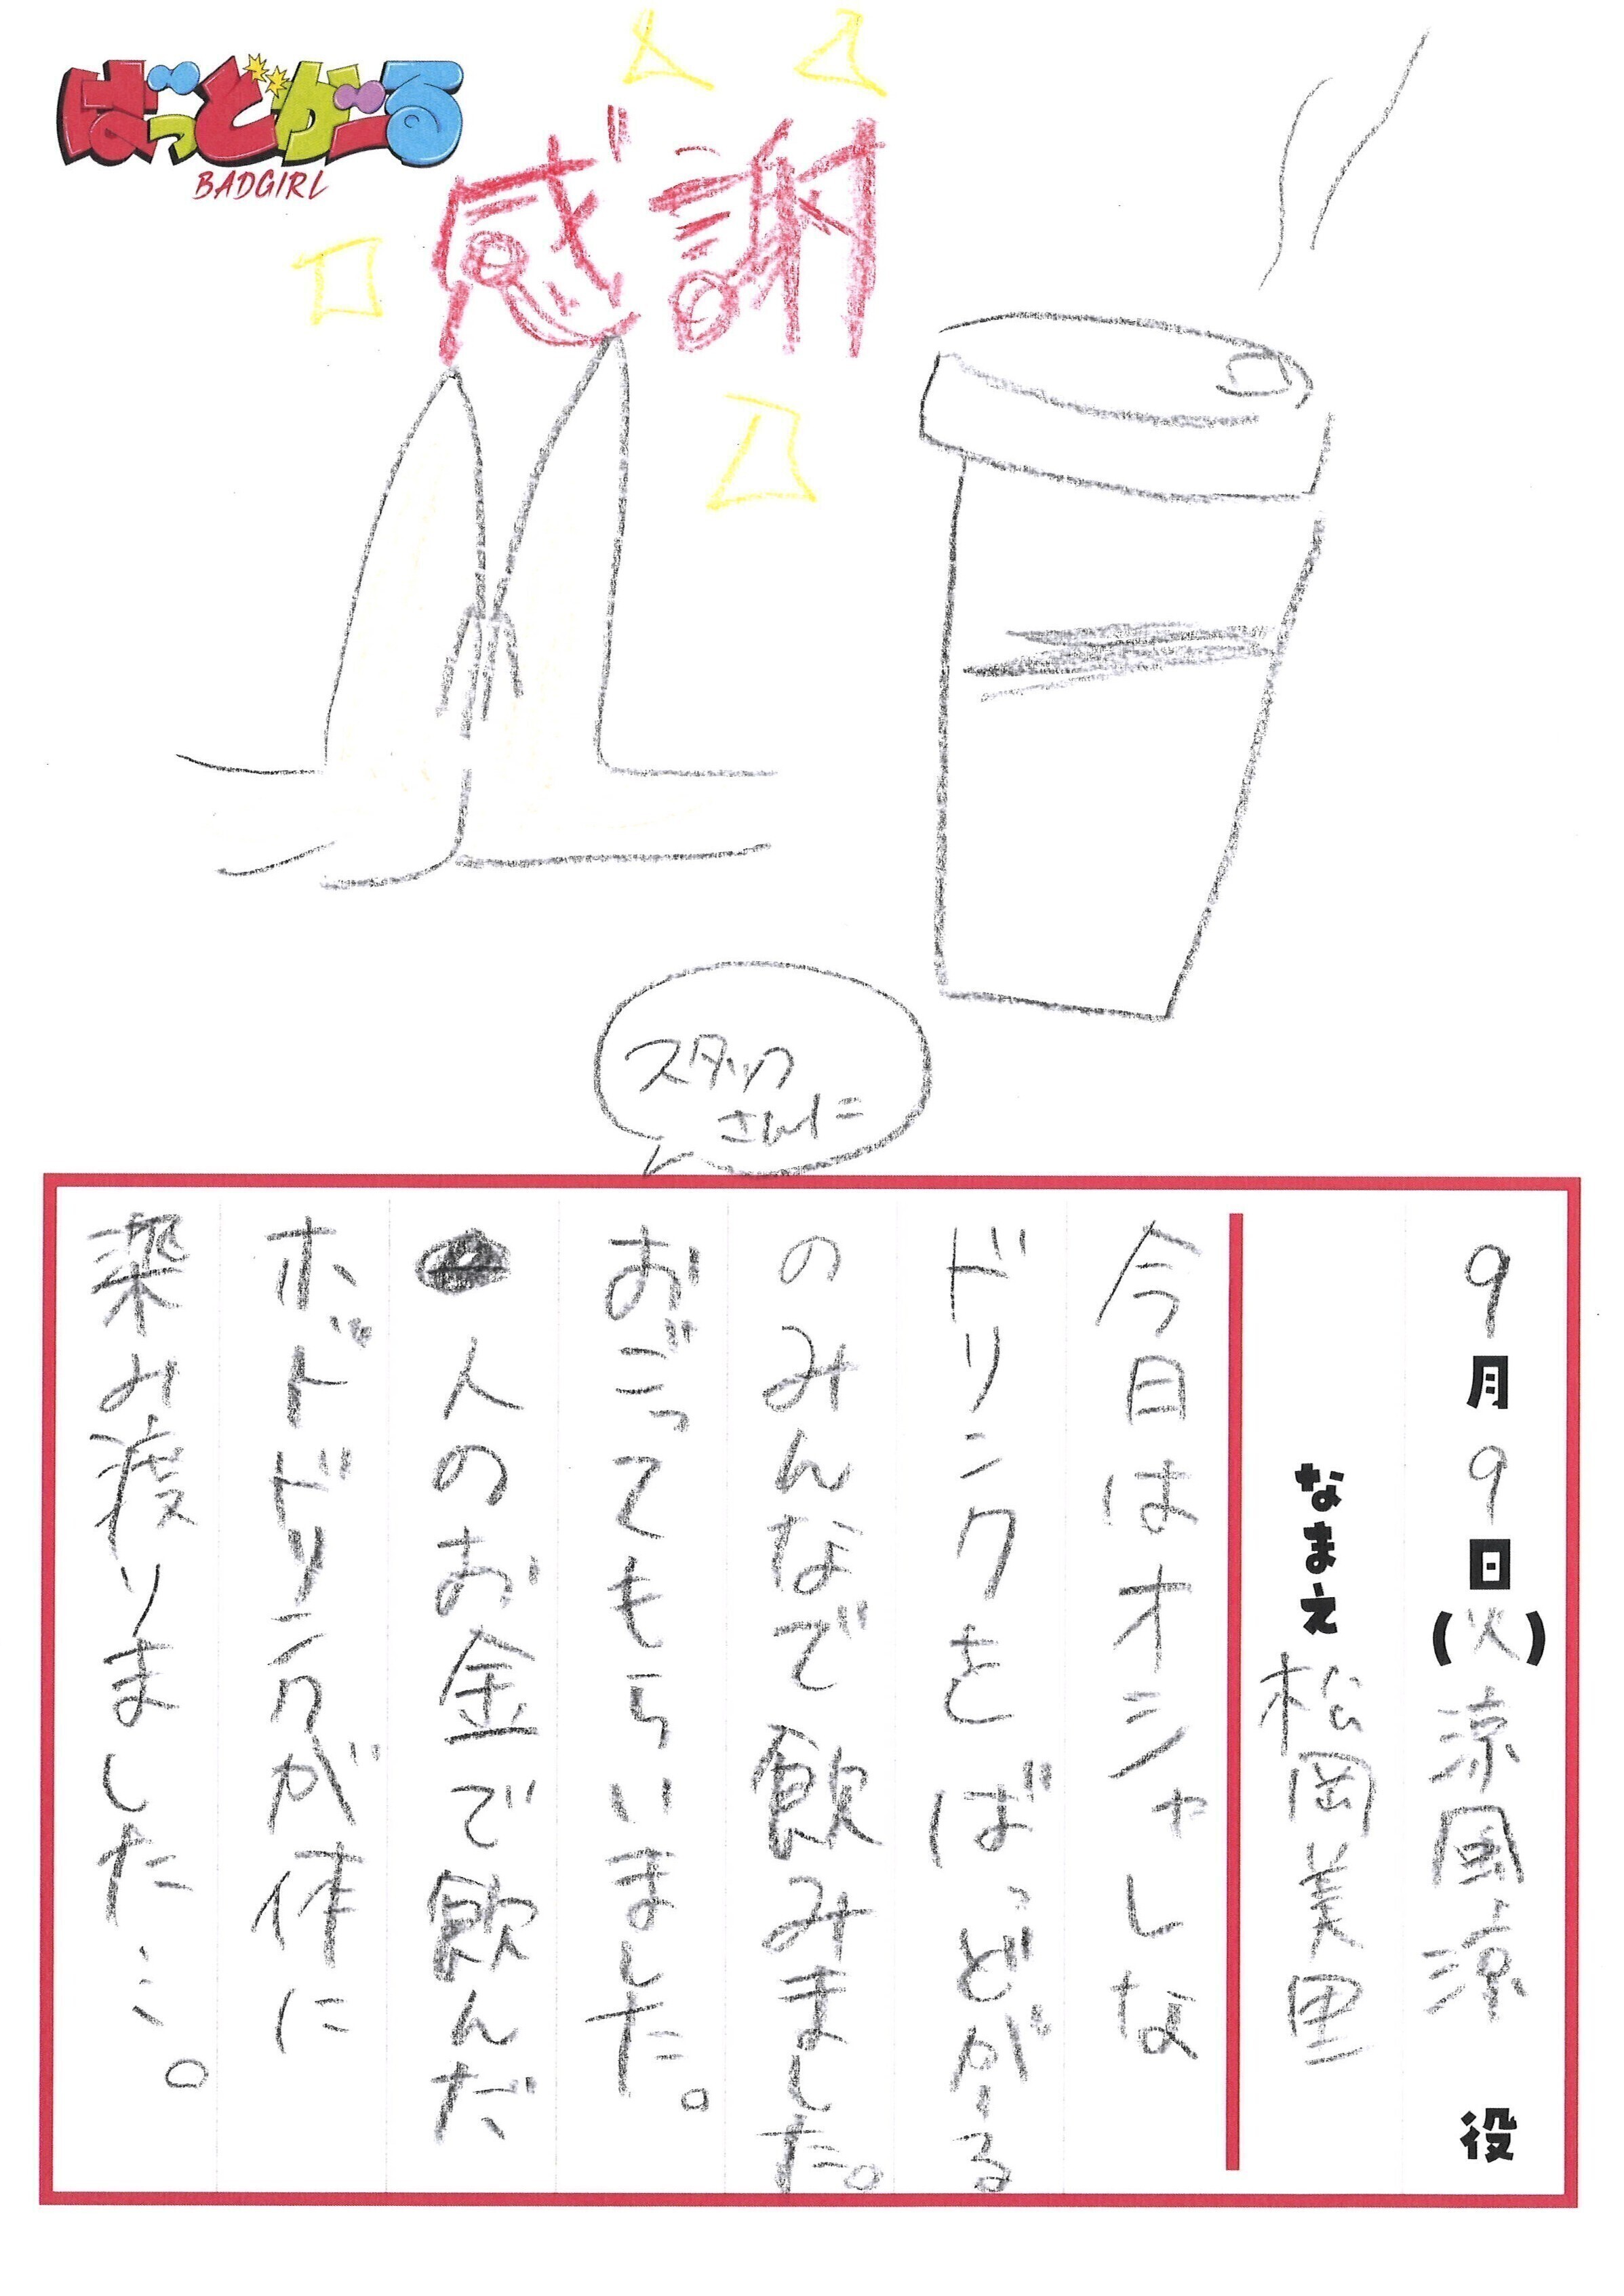 ばっどがーる
BADGIRL
感謝
スタッフ
さんに
9月9日(火)涼風涼 役
なまえ 松岡美里
今日はオシャレな
ドリンクをばっどがーる
のみんなで飲みました。
おごってもらいました。
人のお金で飲んだ
ホットドリンクが体に
染み渡りました…。